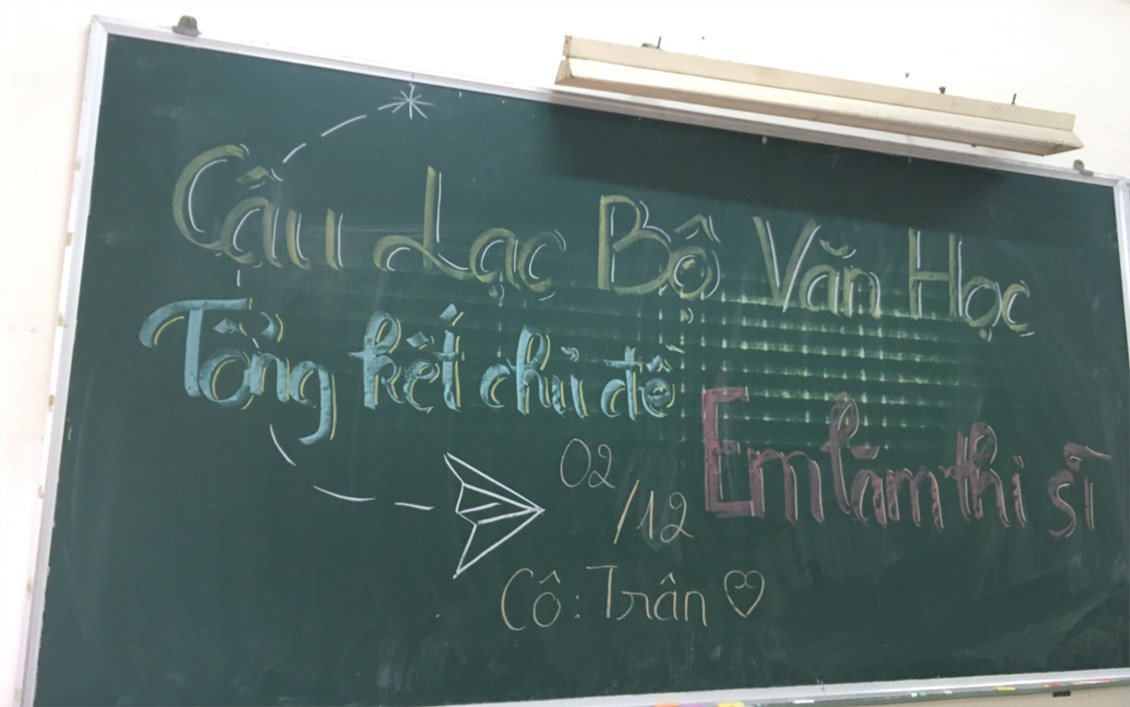 Câu Lạc Bộ Văn Học
Tổng kết chủ đề
Em làm thi sĩ
02
/12
Cô: Trân